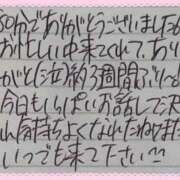 50分でありがとうございました
お忙しい中来てくれて、あり
がと(泣)約3週間ぶり〜
今日もいっぱいお話して沢
れ気持ちよくなれたねまた
いつでも来て下さい~~